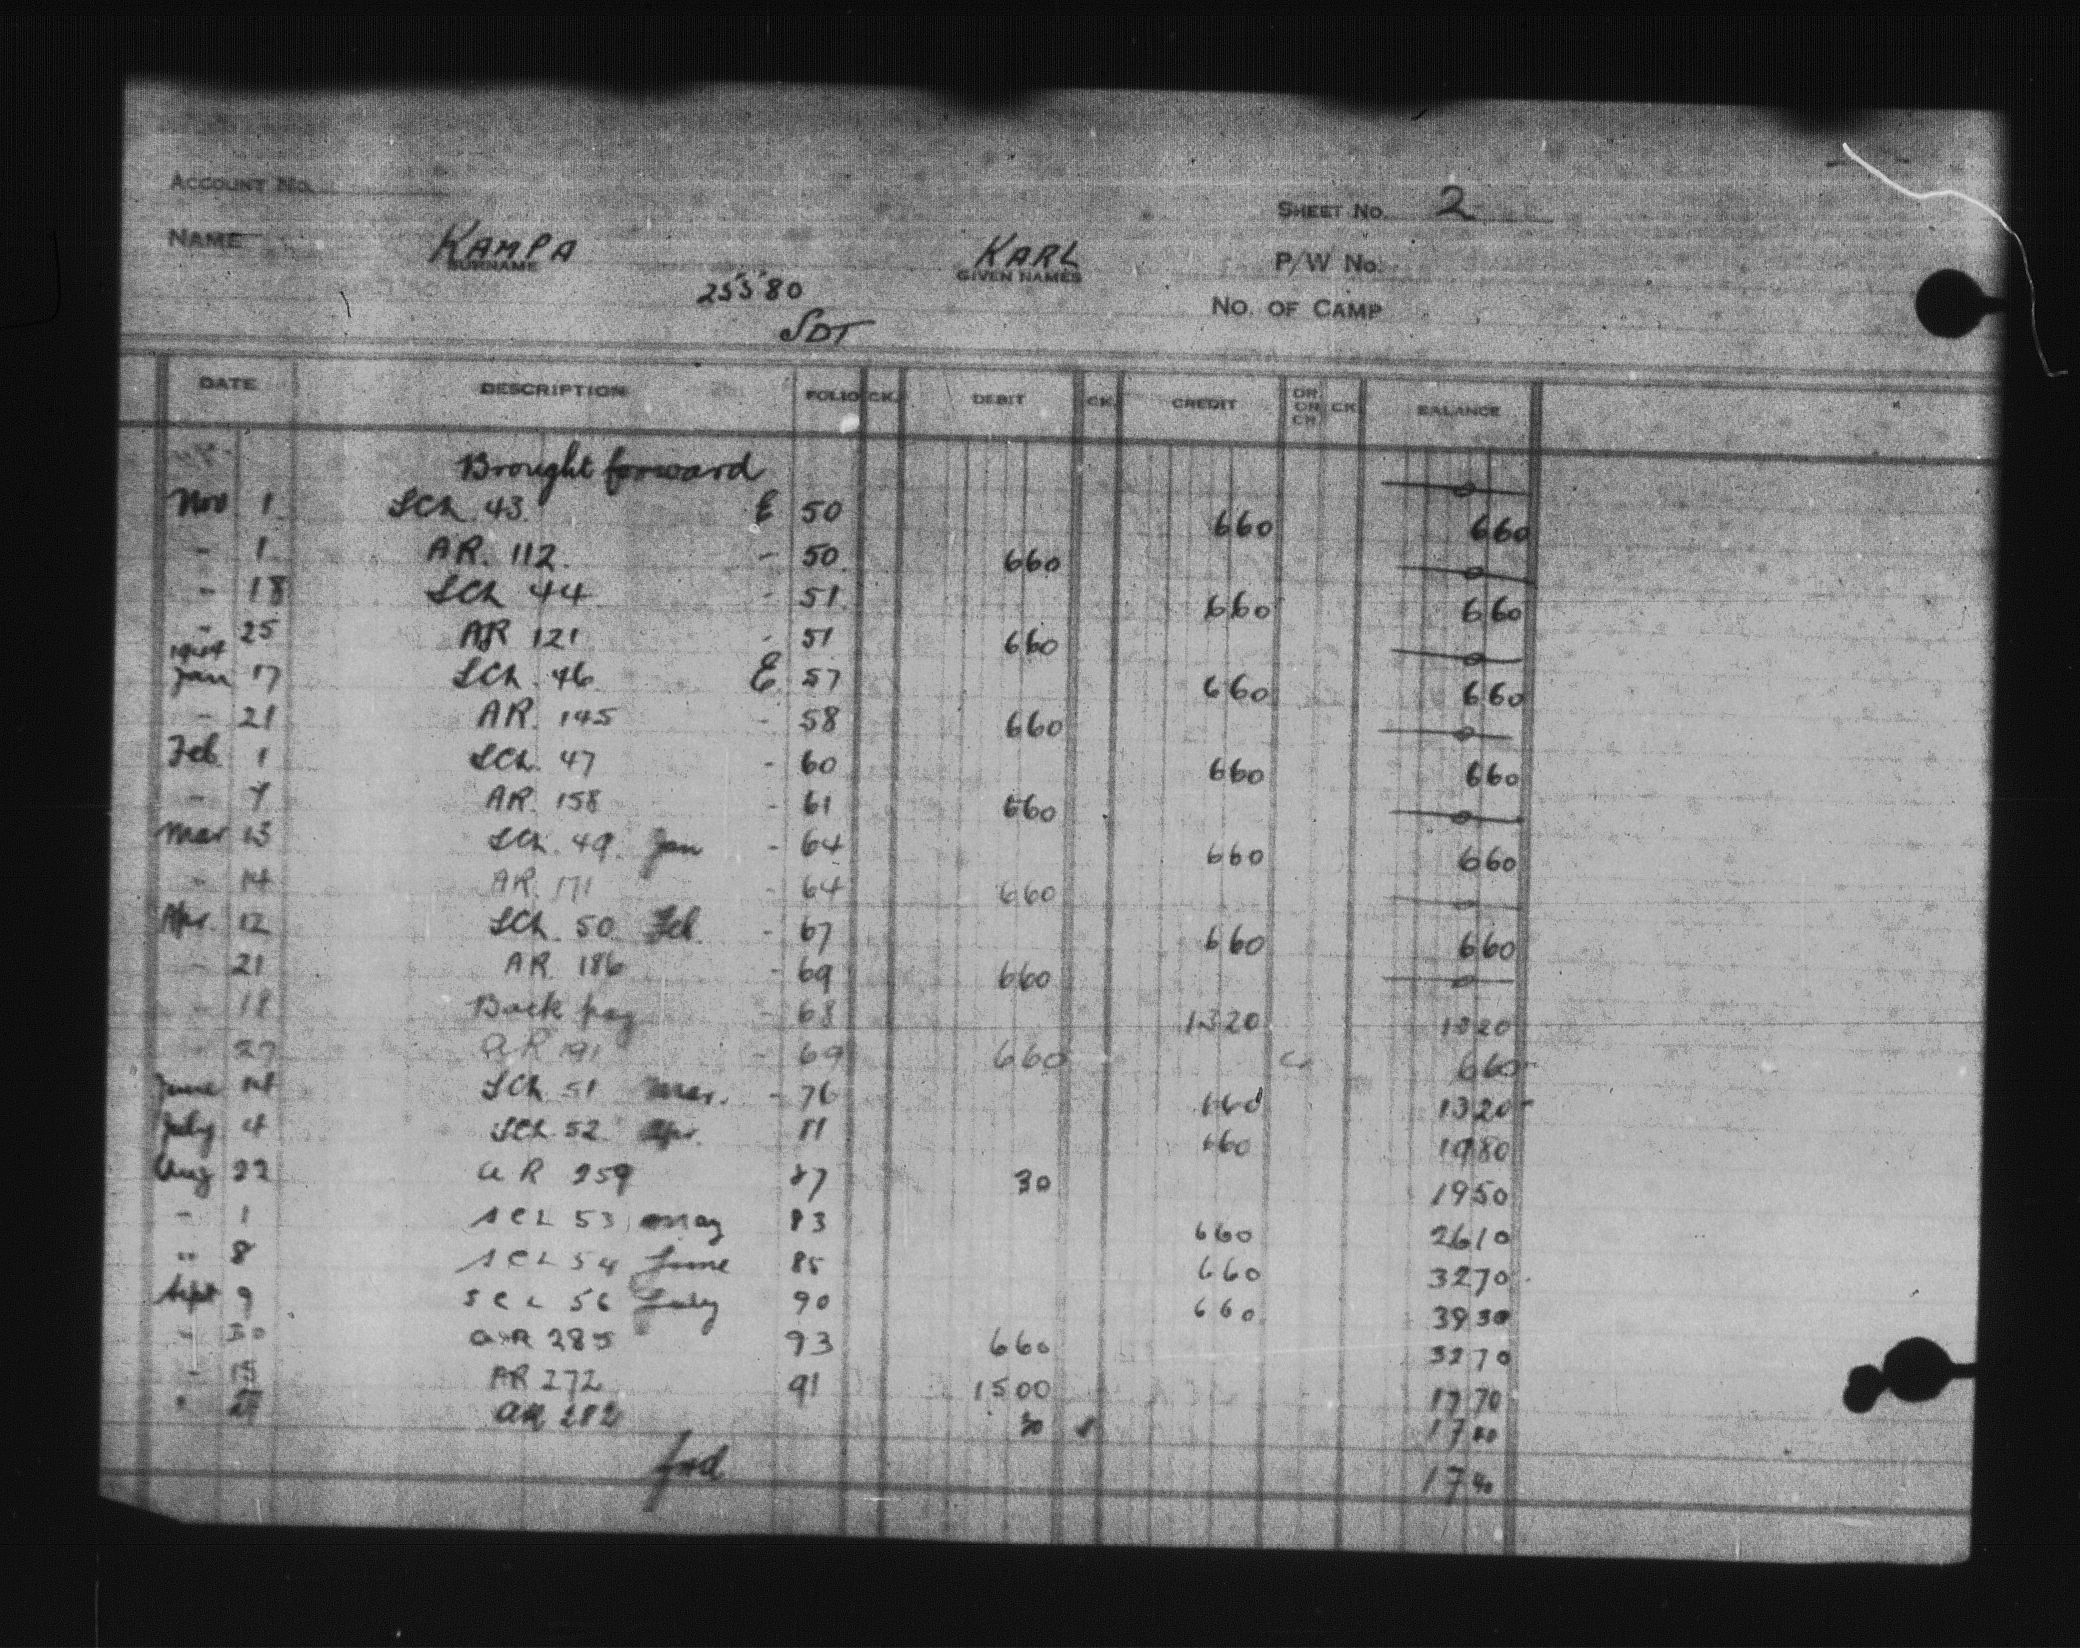 ACCOUNT NO.
SHEET NO. 2
NAME KAMPA KARL
SURNAME GIVEN NAMES
P/W NO.
25580
NO. OF CAMP
SDT
DATE DESCRIPTION FOLIO CK. DEBIT CK. CREDIT DR. OR CR. CK. BALANCE
Brought forward 0
Nov 1 SCh. 43. E 50 660 660
" 1 AR. 112. - 50 660 0
" 18 SCh 44 - 51 660 660
" 25 AR 121 - 51 660 0
Jan 17 SCh. 46 E 57 660 660
- 21 AR. 145 - 58 660 0
Feb 1 SCh. 47 - 60 660 660
- 7 AR. 158 - 61 660 0
Mar 13 SCh. 49. Jan - 64 660 660
- 14 AR. 171 - 64 660 0
Apr. 12 SCh. 50 Feb. - 67 660 660
- 21 AR. 186 - 69 660 0
- 18 Back pay - 68 1320 1320
- 27 AR 191 - 69 660 660
June SCh. 51 Mar. - 76 660 1320
July 4 SCh. 52 Apr. 660 1980
Aug 22 AR 259 87 30 1950
- 1 SCh 53 May 83 660 2610
" 8 SCh 54 June 85 660 3270
Sept 9 SCh 56 July 90 660 3930
" AR 285 93 660 3270
- AR 272 91 1500 1770
" AR 282 30 1740
fwd 1740